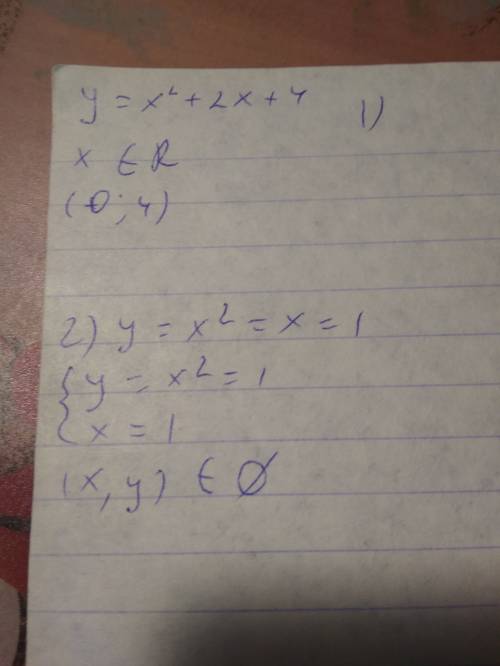 y = x² + 2x + 4 1)
x ∈ R
(0; 4)
2) y = x² = x = 1
{ y = x² = 1
{ x = 1
(x, y) ∈ ∅